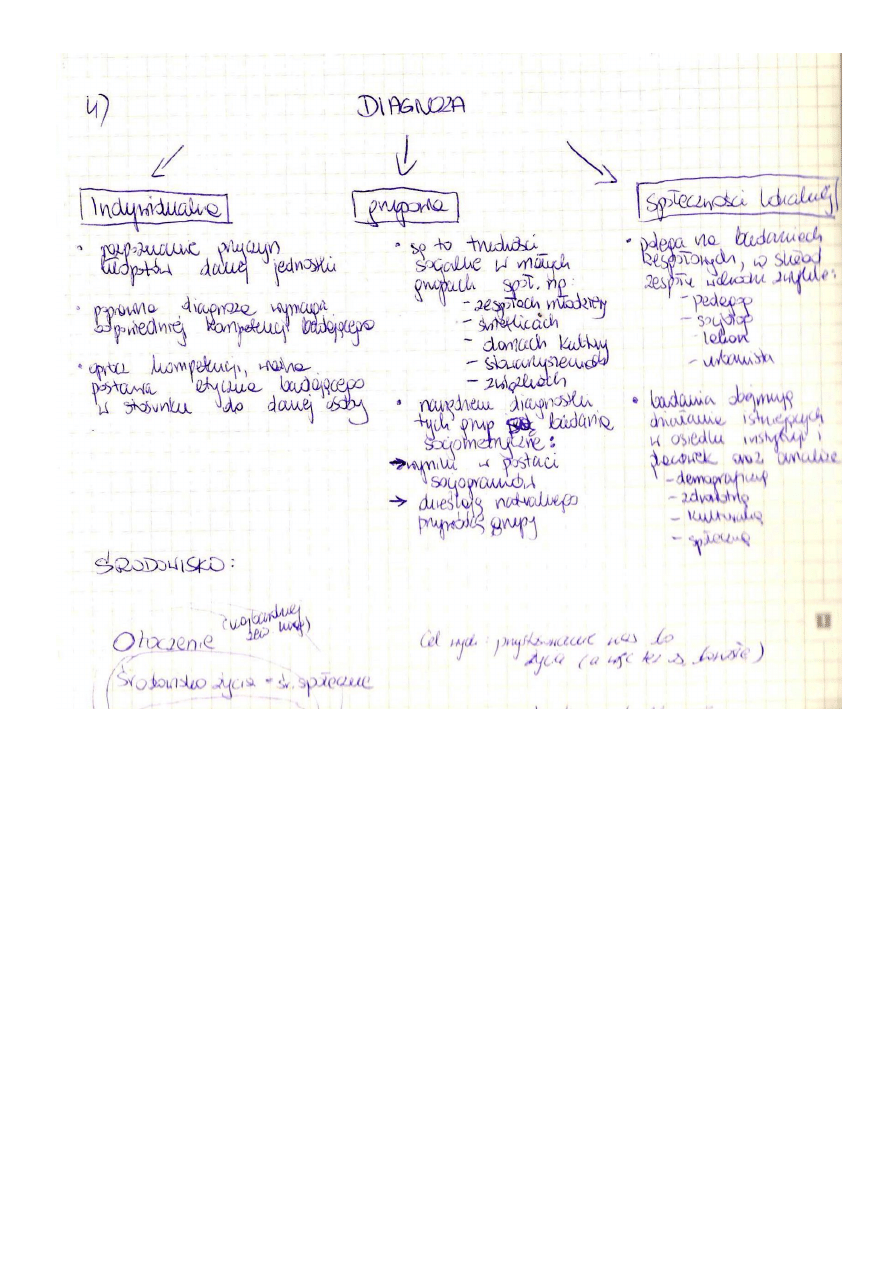 4) DIAGNOZA
Indywidualna
• rozpoznanie przyczyn
kłopotów danej jednostki
• poprawna diagnoza wymaga
odpowiedniej kompetencji badającego
• oprócz kompetencji, ważna
postawa etyczna badającego
w stosunku do danej osoby
grupowa
• są to trudności
socjalne w małych
grupach społ. np.
- zespołach młodzieży
- świetlicach
- domach kultury
- stowarzyszeniach
- związkach
• narzędziem diagnostyki
tych grup są badania
socjometryczne:
→ wyniki w postaci
socjogramów
→
naturalnego
przywódcę grupy
społeczności lokalnej
• polega na badaniach
zespołowych, w skład
zespołu wchodzi zwykle:
- pedagog
- socjolog
- lekarz
- urbanista
• badania obejmują
działanie istniejących
w osiedlu instytucji i
placówek oraz analizę
- demograficzną
- zdrowotną
- kulturalną
- społeczną
ŚRODOWISKO:
Otoczenie
Środowisko życia • śr. społeczne
Cel wych: przystosowanie nas do
życia (a więc też